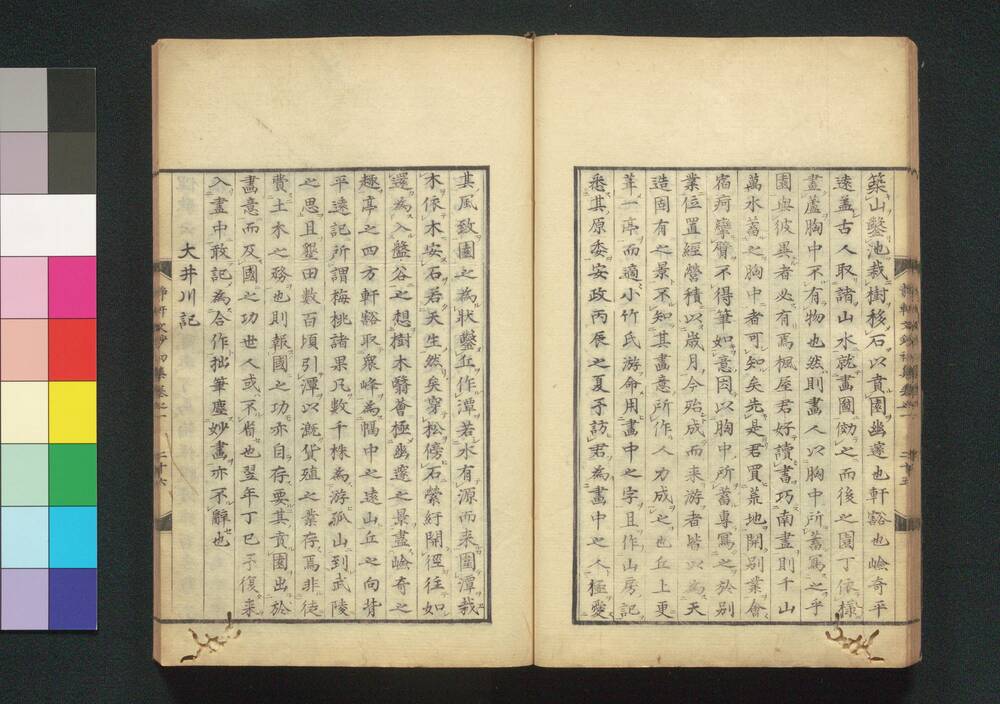 築山鑿池栽樹移石以賁園幽邃也軒豁也嶮奇平
遠盖古人取諸山水就畫圖倣之而後之園丁依樣
畫蘆胸中不有物也然則畫人以胸中所蓄寫之乎
園與彼異者必有焉楓屋君好讀書巧南畫則千山
萬水蓄之胸中者可知矣先是君買荒地開別業會
宿痾攣臂不得筆如意因以胸中所蓄專寫之於別
業位置經營積以歲月今殆成而来游者皆以為天
造固有之景不知其畫意所作人力成之也丘上更
葺一亭而適小竹氏游命用畫中之字且作山房記
悉其原委安政丙辰之夏予訪君為畫中之人極愛
其風致園之為狀鑿丘作潭若水有源而来園潭栽
木依木安石若天生然矣穿松傍石縈紆開徑往如
還為入盤谷之想樹木翳薈極幽邃之景盡嶮奇之
趣亭之四方軒豁取衆峰為幅中之遠山丘之向背
平遠記所謂梅桃諸果凡數千株為游孤山到武陵
之思且墾田數百頃引潭以漑貨殖之業存焉非徒
費土木之務也則報國之功亦自存要其賁園出於
畵意而及國之功世人或不省也翌年丁巳予復来
入畫中敢記為合作拙筆塵妙畫亦不辭也
大井川記